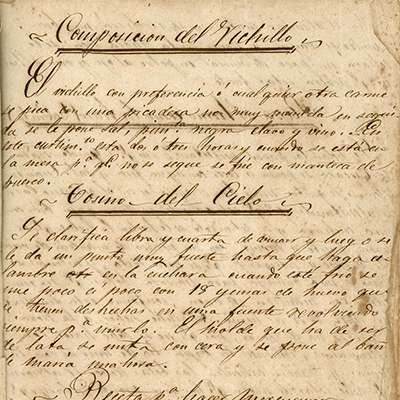 Composicion del Vichillo
El vichillo con preferencia á cualquier otra carne
se pica con una picadera no muy menuda en segui
da se le pone sal, pimta negra clavo y vino. En
este curtimto esta dos o tres horas y cuando se está en
la mesa pa ql no se seque se frie con manteca de
puerco.
Tosino del Cielo
Se clarifica libra y cuarta de azucar y luego se
le da un punto muy fuerte hasta que haga a
lambre en la cuchara cuando esté frio se
une poco á poco con 18 yemas de huevo que
se tienen deshechas en una fuente revolviendo
siempre pa unirlo. El molde que ha de ser
de lata se unta con cera y se pone al bañ
de maria una hora.
Receta pa hacer